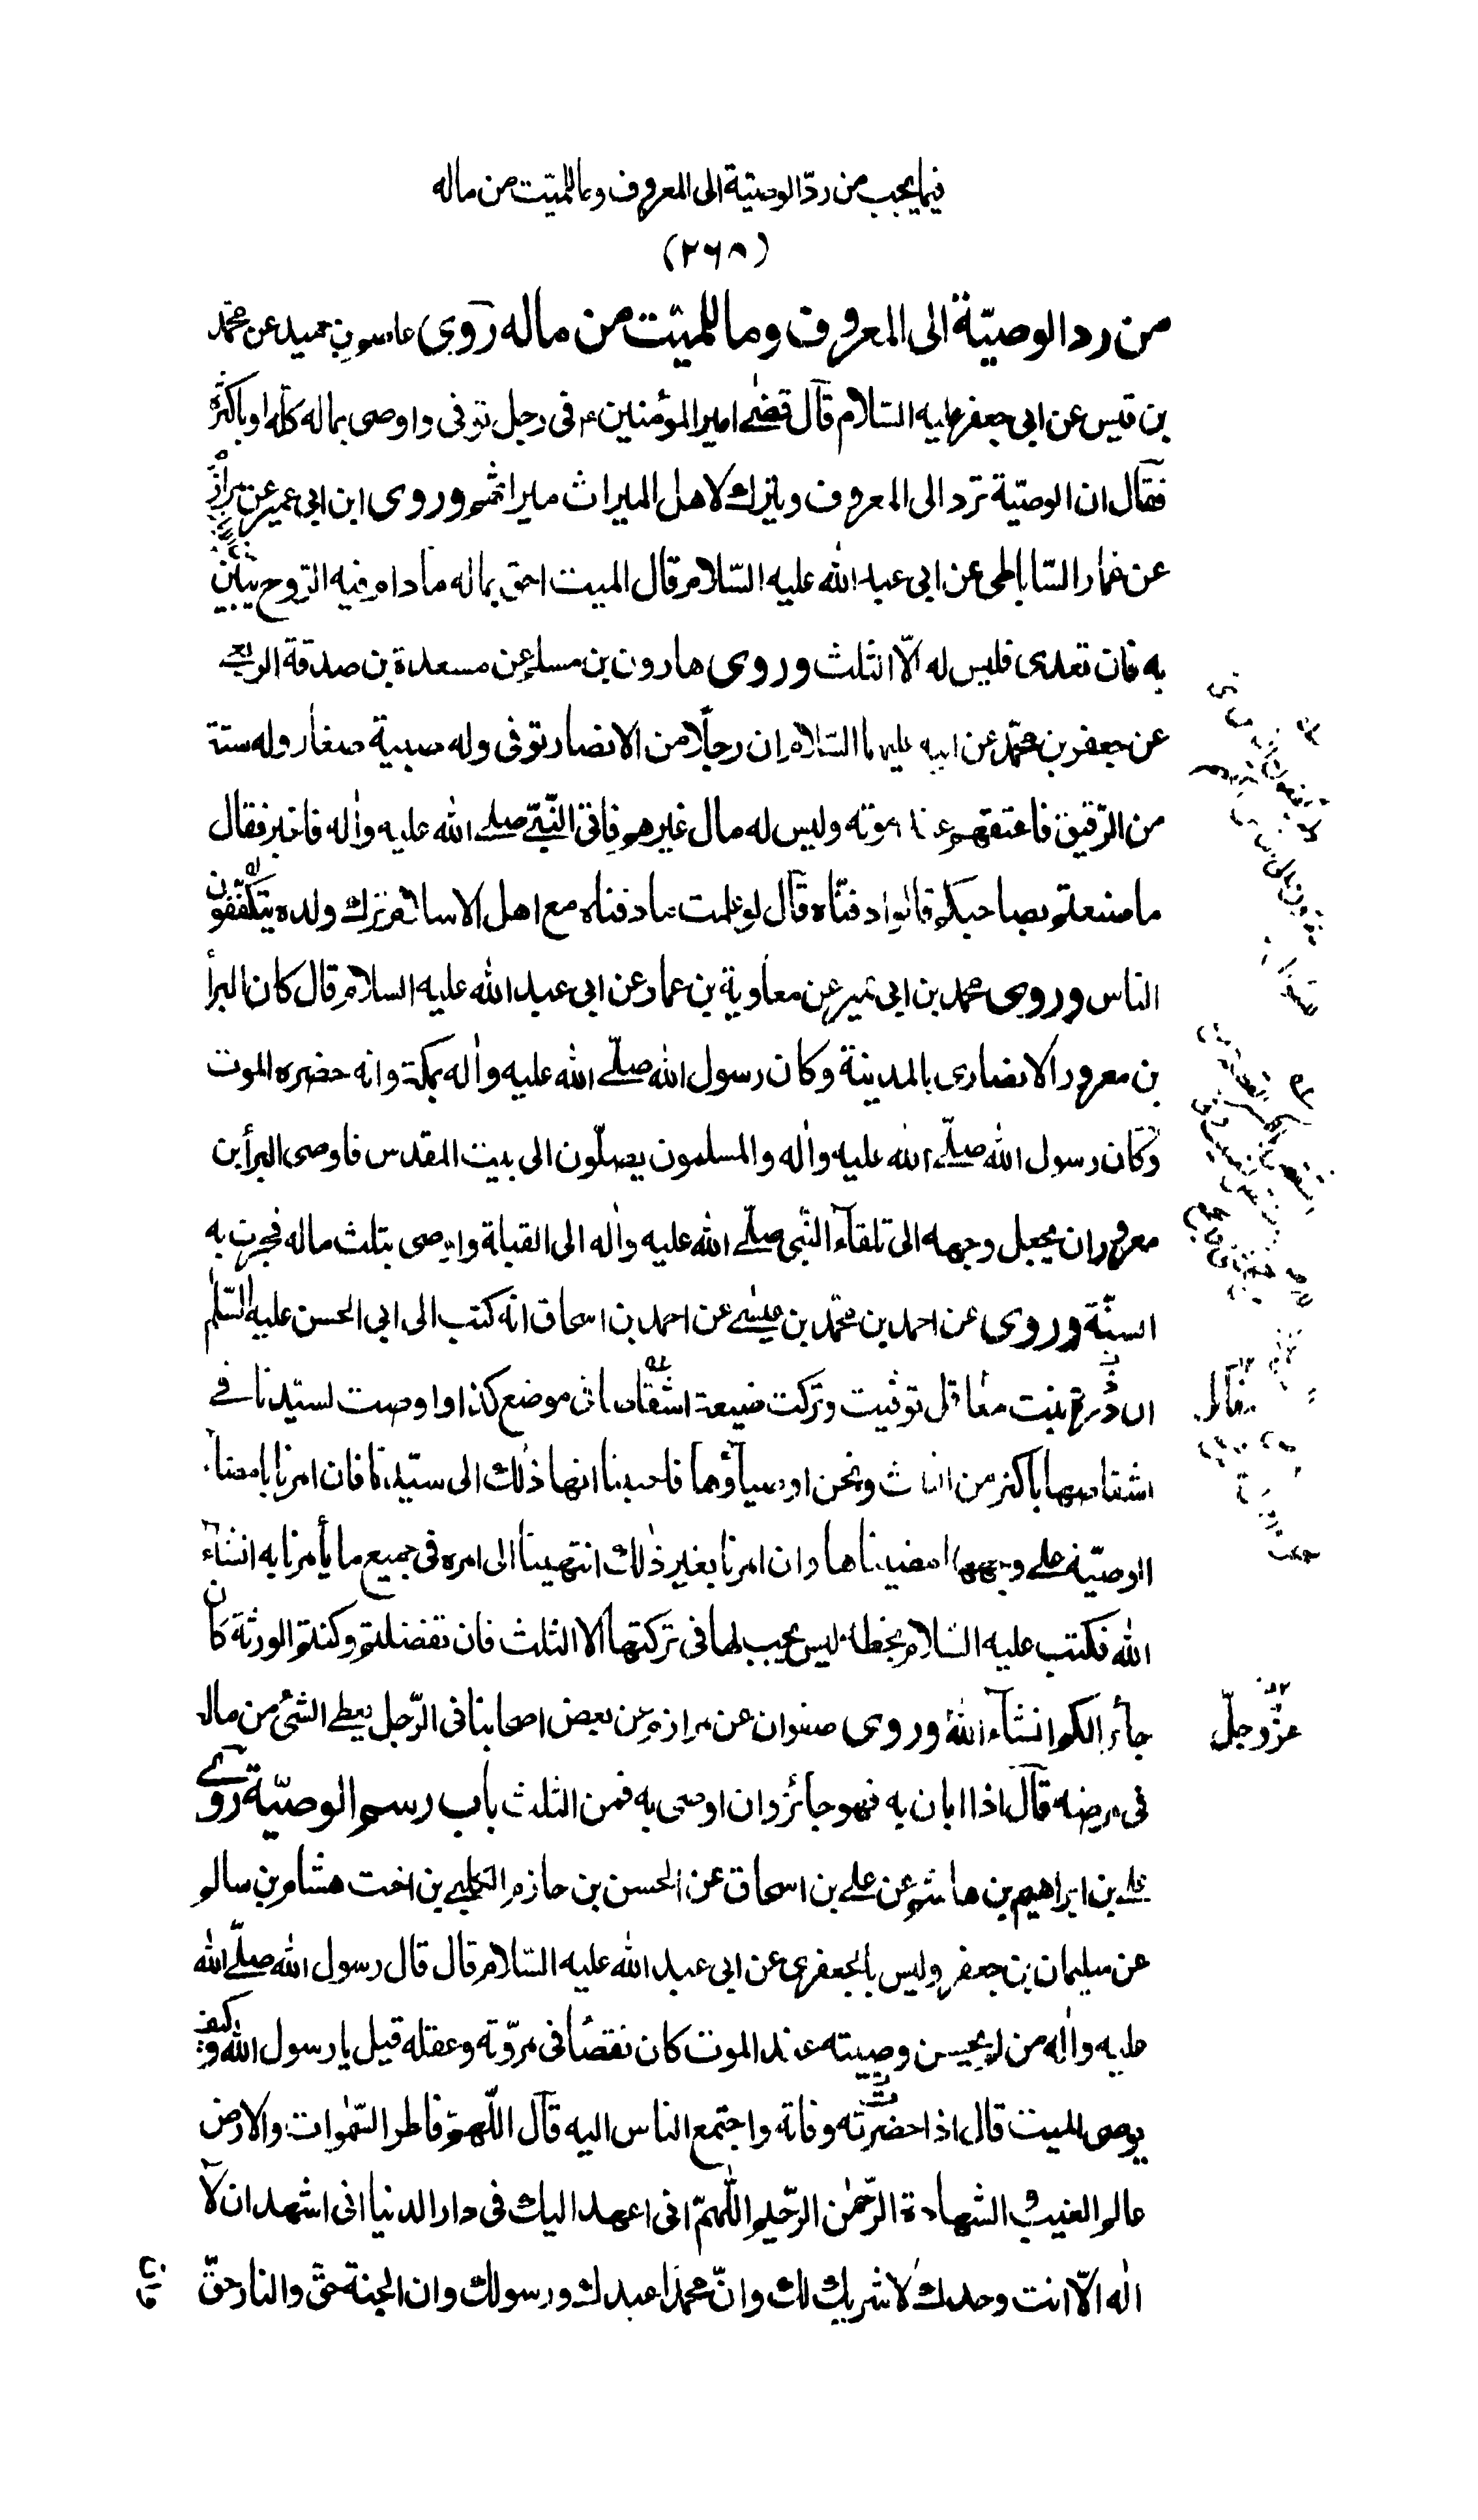 فيما يجب من ردّ الوصيّة الى المعروف وما للميّت من ماله
(٢٦٨)
من رد الوصيّة الى المعروف وما للميّت من ماله روى عاصم بن حميد عن محمّد
بن قيس عن ابى جعفر عليه السّلام قال قضى امير المؤمنين ع فى رجل توفى واوصى بماله كلّه او باكثره
فقال ان الوصيّة ترد الى المعروف ويترك لاهل الميراث ميراثهم وروى ابن ابى عمير عن مرازم
عن عمار السّاباطى عن ابى عبد الله عليه السّلام قال الميت احق بماله ما دام فيه الرّوح يبين
به فان تعدى فليس له الّا الثلث وروى هارون بن مسلم عن مسعدة بن صدقة الربعى
عن جعفر بن محمّد عن ابيه عليهما السّلام ان رجلًا من الانصار توفى وله صبية صغار وله ستة
من الرّقيق فاعتقهم عند موته وليس له مال غيرهم فاتى النّبىّ صلى الله عليه واٰله فاخبر فقال
ما صنعتم بصاحبكم قالوا دفنّاه قال لو علمت ما دفناه مع اهل الاسلام ترك ولده يتكفّفون
الناس وروى محمد بن ابى عمير عن معاوية بن عمار عن ابى عبد الله عليه السلام قال كان البرأ
بن معرور الانصارى بالمدينة وكان رسول الله صلّى الله عليه واٰله بمكة وانه حضره الموت
وكان رسول الله صلّى الله عليه واٰله والمسلمون يصلّون الى بيت المقدس فاوصى البرأ بن
معرور ان يجعل وجهه الى تلقاۤء النّبى صلّى الله عليه واٰله الى القبلة واوصى بثلث ماله فجرت به
السنّة وروى عن احمد بن محمّد بن عيسى عن احمد بن اسحاق انه كتب الى ابى الحسن عليه السّلم
ان درة بنت مقاتل توفيت وتركت ضيعة اشقاصا فى موضع كذا واوصت لسيّدنا فى
مقاتل
اشقاصها باكثر من الثلث ونحن اوصياۤؤها فاحببنا انهاۤ ذٰلك الى سيّدنا فان امرنا بامضاۤء
الوصيّة على وجهها امضيناها وان امرنا بغير ذٰلك انتهينا الى امره فى جميع ما يأمرنا به انشاۤء
الله فكتب عليه السّلام بخطه ليس يجب لها فى تركتها الا الثلث فان تفضلتم وكنتم الورثة كان
جاۤئزا لكم انشاۤء الله وروى صفوان عن مرازم عن بعض اصحابنا فى الرّجل يعطى الشئ من ماله
عزّ وجلّ
فى مرضه قال اذا ابان به فهو جائز وان اوصى به فمن الثلث باب رسم الوصيّة روى
على بن ابراهيم بن هاشم عن على بن اسحاق عن الحسن بن حازم الكلبى بن اخت هشام بن سالم
عن سليمان بن جعفر وليس بالجعفرى عن ابى عبد الله عليه السّلام قال قال رسول الله صلّى الله
عليه واٰله من لم يحسن وصيته عند الموت كان نقصًا فى مروّته وعقله قيل يا رسول الله وكيف
يوصى الميت قال اذا حضرته وفاته واجتمع الناس اليه قال اللّهمّ فاطر السّمٰوات والارض
عالم الغيب والشهادة الرّحمٰن الرّحيم اللّهمّ انى اعهد اليك فى دار الدنيا انى اشهد ان لاۤ
اله الّا انت وحدك لا شريك لك وانّ محمّدًا عبدك ورسولك وان الجنة حقّ والنار حقّ